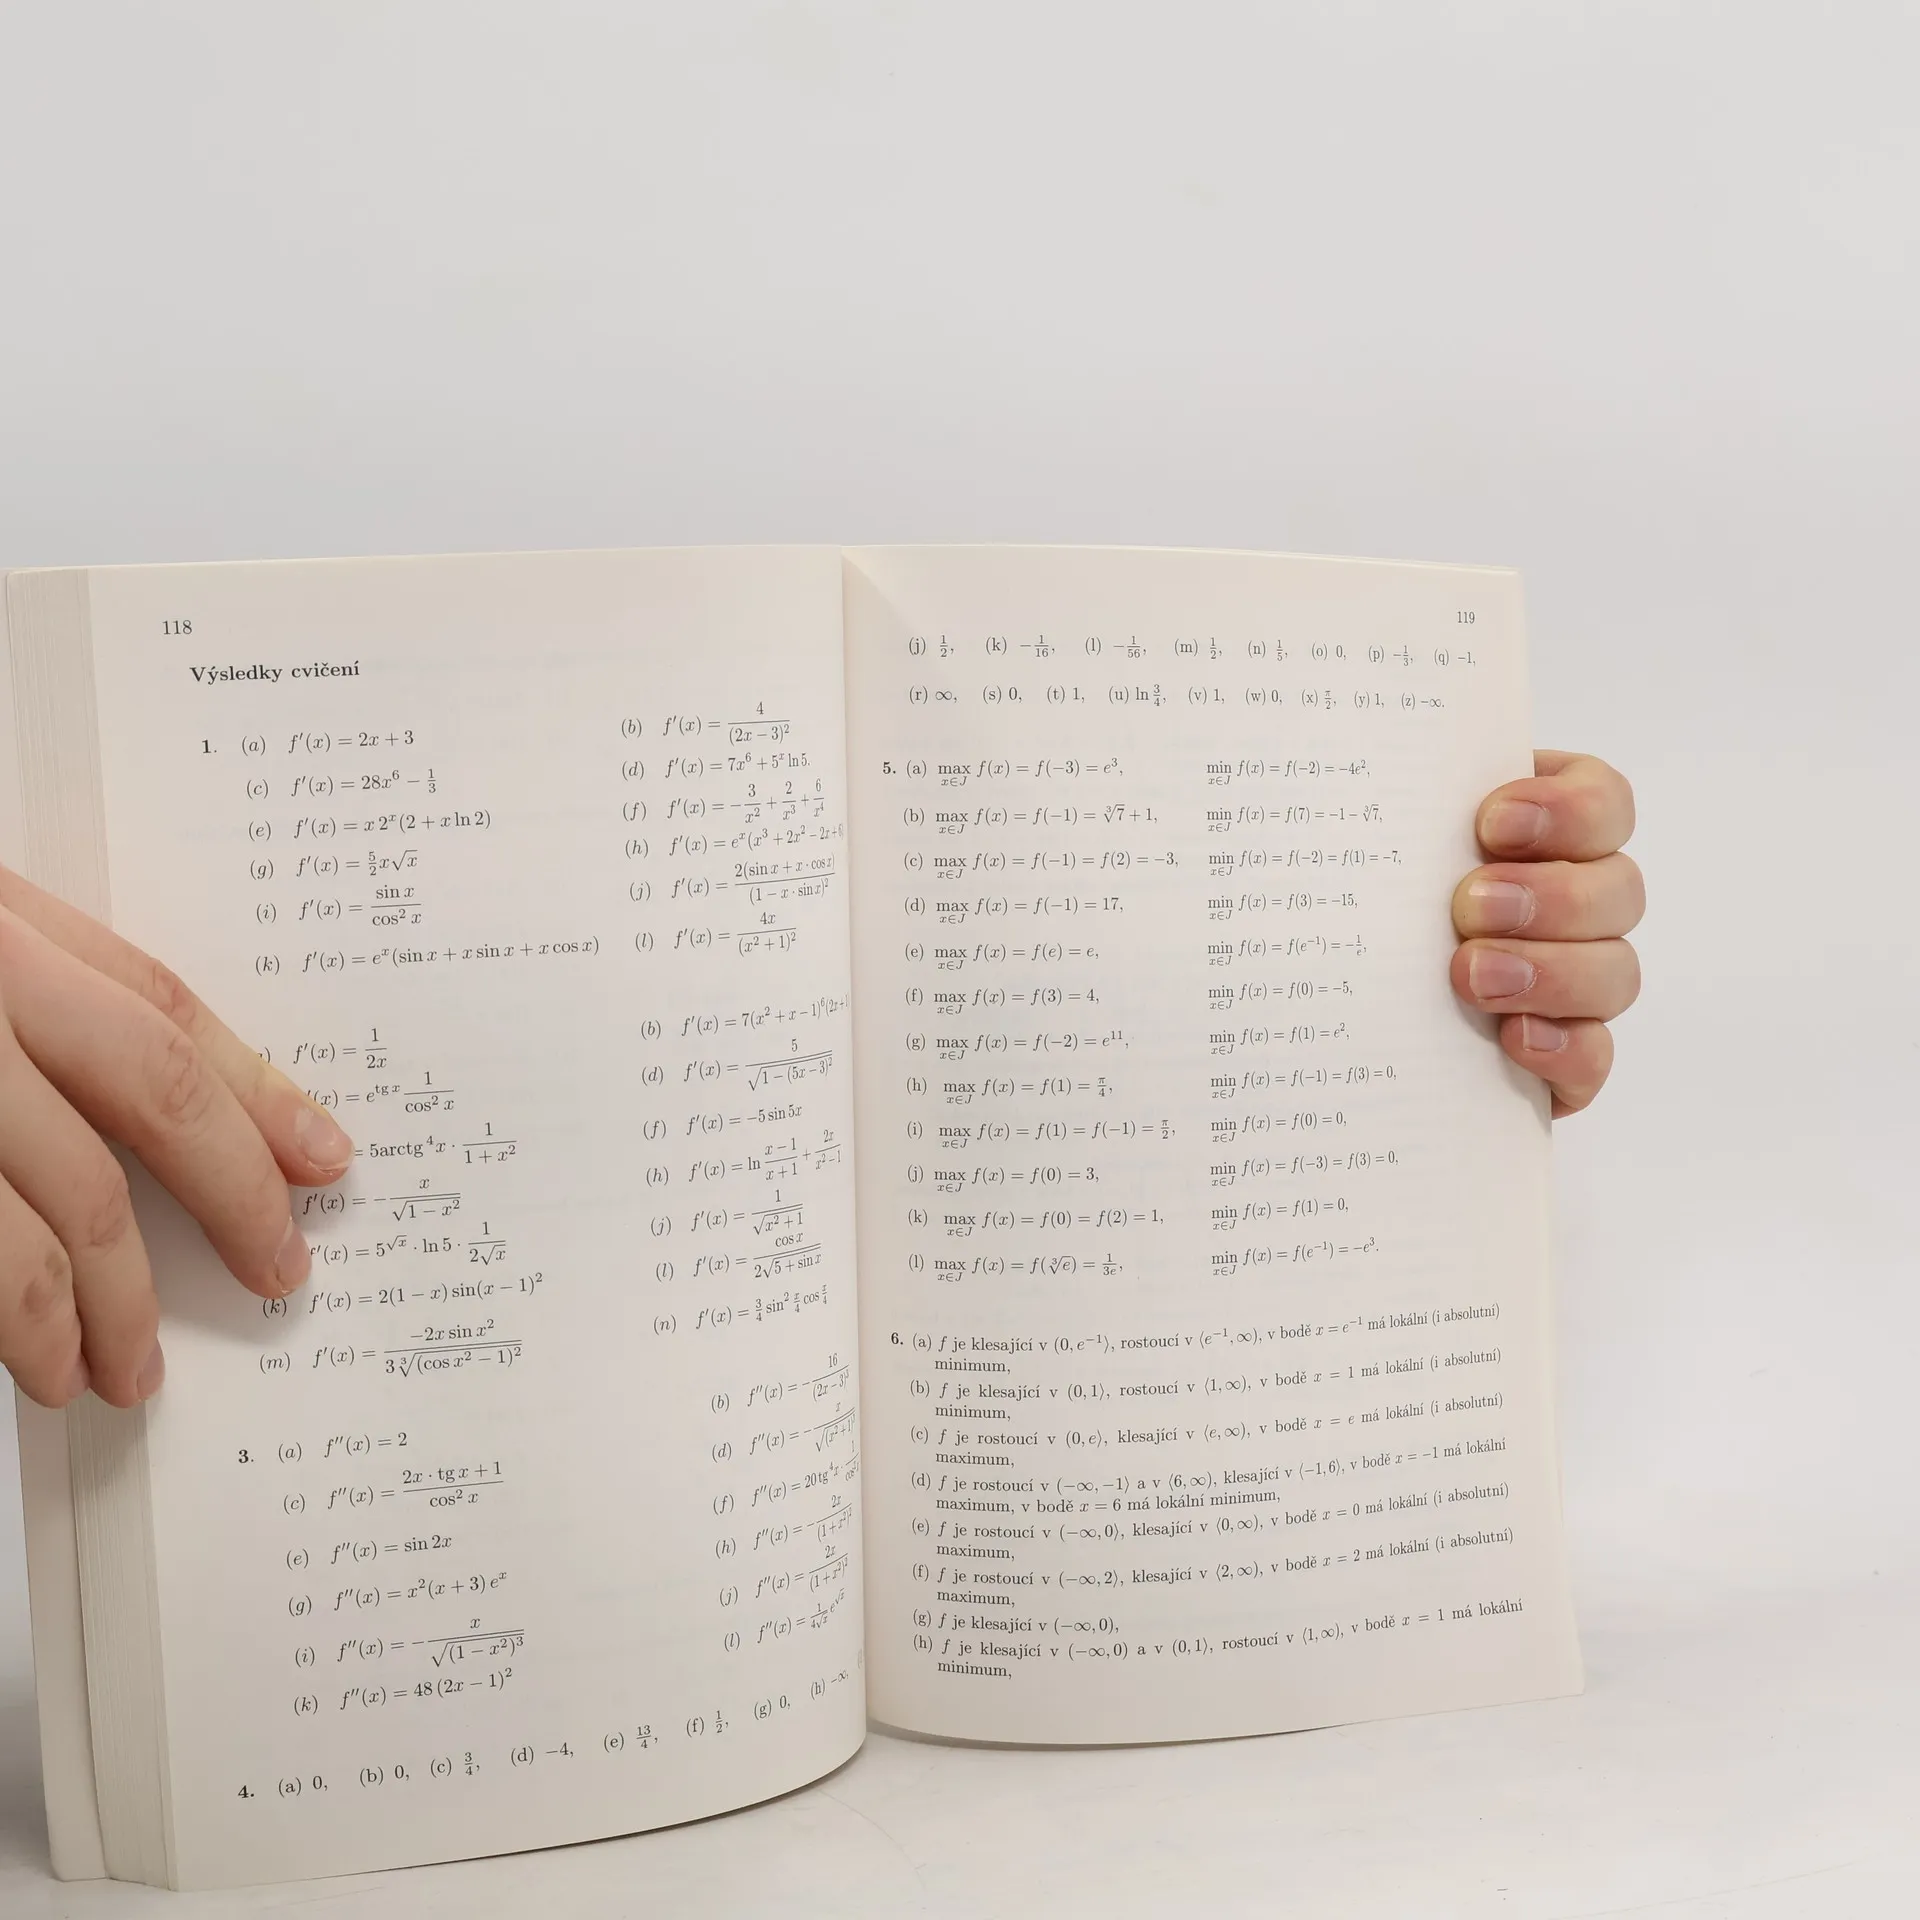 118
Výsledky cvičení
1. (a) f′(x) = 2x + 3 (b) f′(x) = 4/(2x − 3)²
(c) f′(x) = 28x⁶ − 1/3 (d) f′(x) = 7x⁶ + 5ˣ ln 5.
(e) f′(x) = x 2ˣ(2 + x ln 2) (f) f′(x) = −3/x² + 2/x³ + 6/x⁴
(g) f′(x) = 5/2 x√x (h) f′(x) = eˣ(x³ + 2x² − 2x + 6)
(i) f′(x) = sin x/cos² x (j) f′(x) = 2(sin x + x · cos x)/(1 − x · sin x)²
(k) f′(x) = eˣ(sin x + x sin x + x cos x) (l) f′(x) = 4x/(x² + 1)²
) f′(x) = 1/2x (b) f′(x) = 7(x² + x − 1)⁶(2x + 1
′(x) = e^(tg x) 1/cos² x (d) f′(x) = 5/√(1 − (5x − 3)²)
= 5arctg⁴x · 1/(1 + x²) (f) f′(x) = −5 sin 5x
f′(x) = −x/√(1 − x²) (h) f′(x) = ln (x − 1)/(x + 1) + 2x/(x² − 1)
f′(x) = 5^√x · ln 5 · 1/(2√x) (j) f′(x) = 1/√(x² + 1)
(k) f′(x) = 2(1 − x) sin(x − 1)² (l) f′(x) = cos x/(2√(5 + sin x))
(m) f′(x) = −2x sin x²/(3 ∛((cos x² − 1)²)) (n) f′(x) = 3/4 sin² x/4 cos x/4
3. (a) f″(x) = 2 (b) f″(x) = −16/(2x − 3)³
(c) f″(x) = (2x · tg x + 1)/cos² x (d) f″(x) = −x/√((x² + 1)³)
(e) f″(x) = sin 2x (f) f″(x) = 20 tg⁴x · 1/cos²
(g) f″(x) = x²(x + 3) eˣ (h) f″(x) = −2x/(1 + x²)²
(i) f″(x) = −x/√((1 − x²)³) (j) f″(x) = 2x/(1 + x²)²
(k) f″(x) = 48 (2x − 1)² (l) f″(x) = 1/(4√x) e^√x
4. (a) 0, (b) 0, (c) 3/4, (d) −4, (e) 13/4, (f) 1/2, (g) 0, (h) −∞,
119
(j) 1/2, (k) −1/16, (l) −1/56, (m) 1/2, (n) 1/5, (o) 0, (p) −1/3, (q) −1,
(r) ∞, (s) 0, (t) 1, (u) ln 3/4, (v) 1, (w) 0, (x) π/2, (y) 1, (z) −∞.
5. (a) max x∈J f(x) = f(−3) = e³, min x∈J f(x) = f(−2) = −4e²,
(b) max x∈J f(x) = f(−1) = ∛7 + 1, min x∈J f(x) = f(7) = −1 − ∛7,
(c) max x∈J f(x) = f(−1) = f(2) = −3, min x∈J f(x) = f(−2) = f(1) = −7,
(d) max x∈J f(x) = f(−1) = 17, min x∈J f(x) = f(3) = −15,
(e) max x∈J f(x) = f(e) = e, min x∈J f(x) = f(e⁻¹) = −1/e,
(f) max x∈J f(x) = f(3) = 4, min x∈J f(x) = f(0) = −5,
(g) max x∈J f(x) = f(−2) = e¹¹, min x∈J f(x) = f(1) = e²,
(h) max x∈J f(x) = f(1) = π/4, min x∈J f(x) = f(−1) = f(3) = 0,
(i) max x∈J f(x) = f(1) = f(−1) = π/2, min x∈J f(x) = f(0) = 0,
(j) max x∈J f(x) = f(0) = 3, min x∈J f(x) = f(−3) = f(3) = 0,
(k) max x∈J f(x) = f(0) = f(2) = 1, min x∈J f(x) = f(1) = 0,
(l) max x∈J f(x) = f(∛e) = 1/3e, min x∈J f(x) = f(e⁻¹) = −e³.
6. (a) f je klesající v (0, e⁻¹⟩, rostoucí v ⟨e⁻¹, ∞), v bodě x = e⁻¹ má lokální (i absolutní)
minimum,
(b) f je klesající v (0, 1⟩, rostoucí v ⟨1, ∞), v bodě x = 1 má lokální (i absolutní)
minimum,
(c) f je rostoucí v (0, e⟩, klesající v ⟨e, ∞), v bodě x = e má lokální (i absolutní)
maximum,
(d) f je rostoucí v (−∞, −1⟩ a v ⟨6, ∞), klesající v ⟨−1, 6⟩, v bodě x = −1 má lokální
maximum, v bodě x = 6 má lokální minimum,
(e) f je rostoucí v (−∞, 0⟩, klesající v ⟨0, ∞), v bodě x = 0 má lokální (i absolutní)
maximum,
(f) f je rostoucí v (−∞, 2⟩, klesající v ⟨2, ∞), v bodě x = 2 má lokální (i absolutní)
maximum,
(g) f je klesající v (−∞, 0),
(h) f je klesající v (−∞, 0) a v (0, 1⟩, rostoucí v ⟨1, ∞), v bodě x = 1 má lokální
minimum,